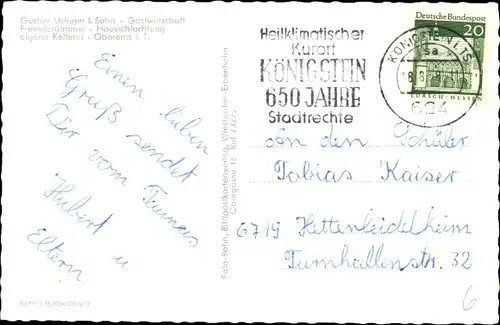 Gustav Usinger & Sohn - Gastwirtschaft
Fremdenzimmer - Hausschlachtung
eigene Kelterei - Oberems i. T.
Einen lieben
Gruß sendet
Dir vom Taunus
Hubert u
Eltern
Foto-Bohn, Bildpostkartenverlag, Wiesbaden-Erbenheim
Obergasse 13 - Ruf
Heilklimatischer
Kurort
KÖNIGSTEIN
650 JAHRE
Stadtrechte
Deutsche Bundespost
20
LORSCH/HESSEN
KÖNIGSTEIN, TS
sa
624
An den Schüler
Tobias Kaiser
6719 Hettenleidelheim
Turnhallenstr. 32
6